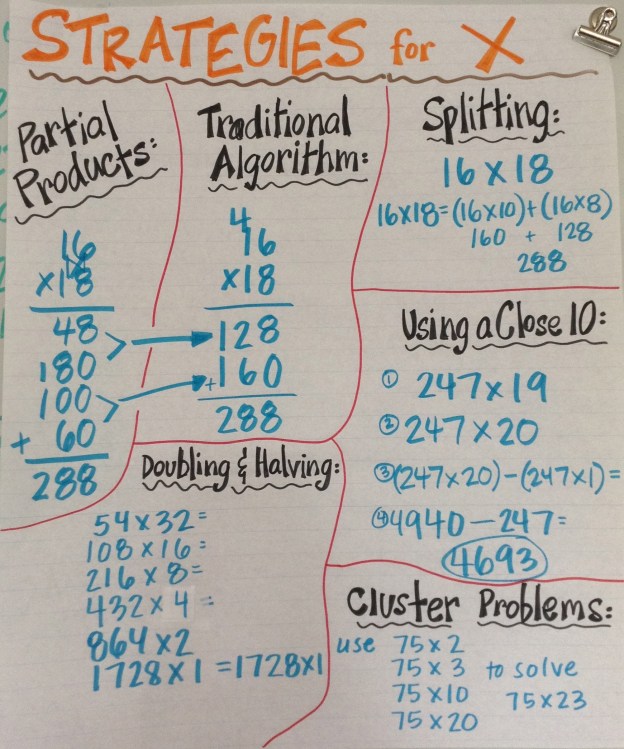 STRATEGIES for X
Partial
Products:
16
×18
48
180
100
+ 60
288
Traditional
Algorithm:
4
16
×18
128
+160
288
Splitting:
16 × 18
16×18=(16×10)+(16×8)
160 + 128
288
Using a Close 10:
① 247×19
② 247×20
③ (247×20)-(247×1)=
④ 4940-247=
4693
Doubling & Halving:
54×32=
108×16=
216×8=
432×4=
864×2
1728×1 =1728×1
Cluster Problems:
use 75×2
75×3 to solve
75×10 75×23
75×20